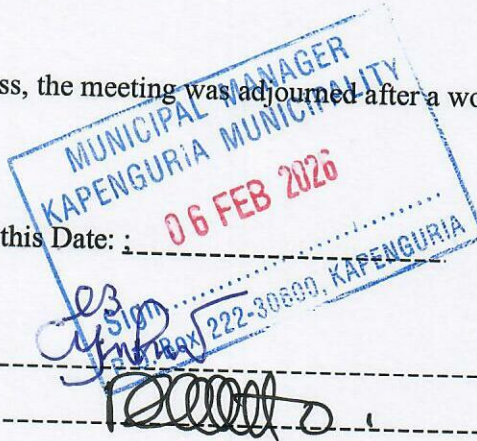 ss, the meeting was adjourned after a wo
MUNICIPAL MANAGER
KAPENGURIA MUNICIPALITY
06 FEB 2026
this Date: :
Sign
Box 222-30600, KAPENGURIA